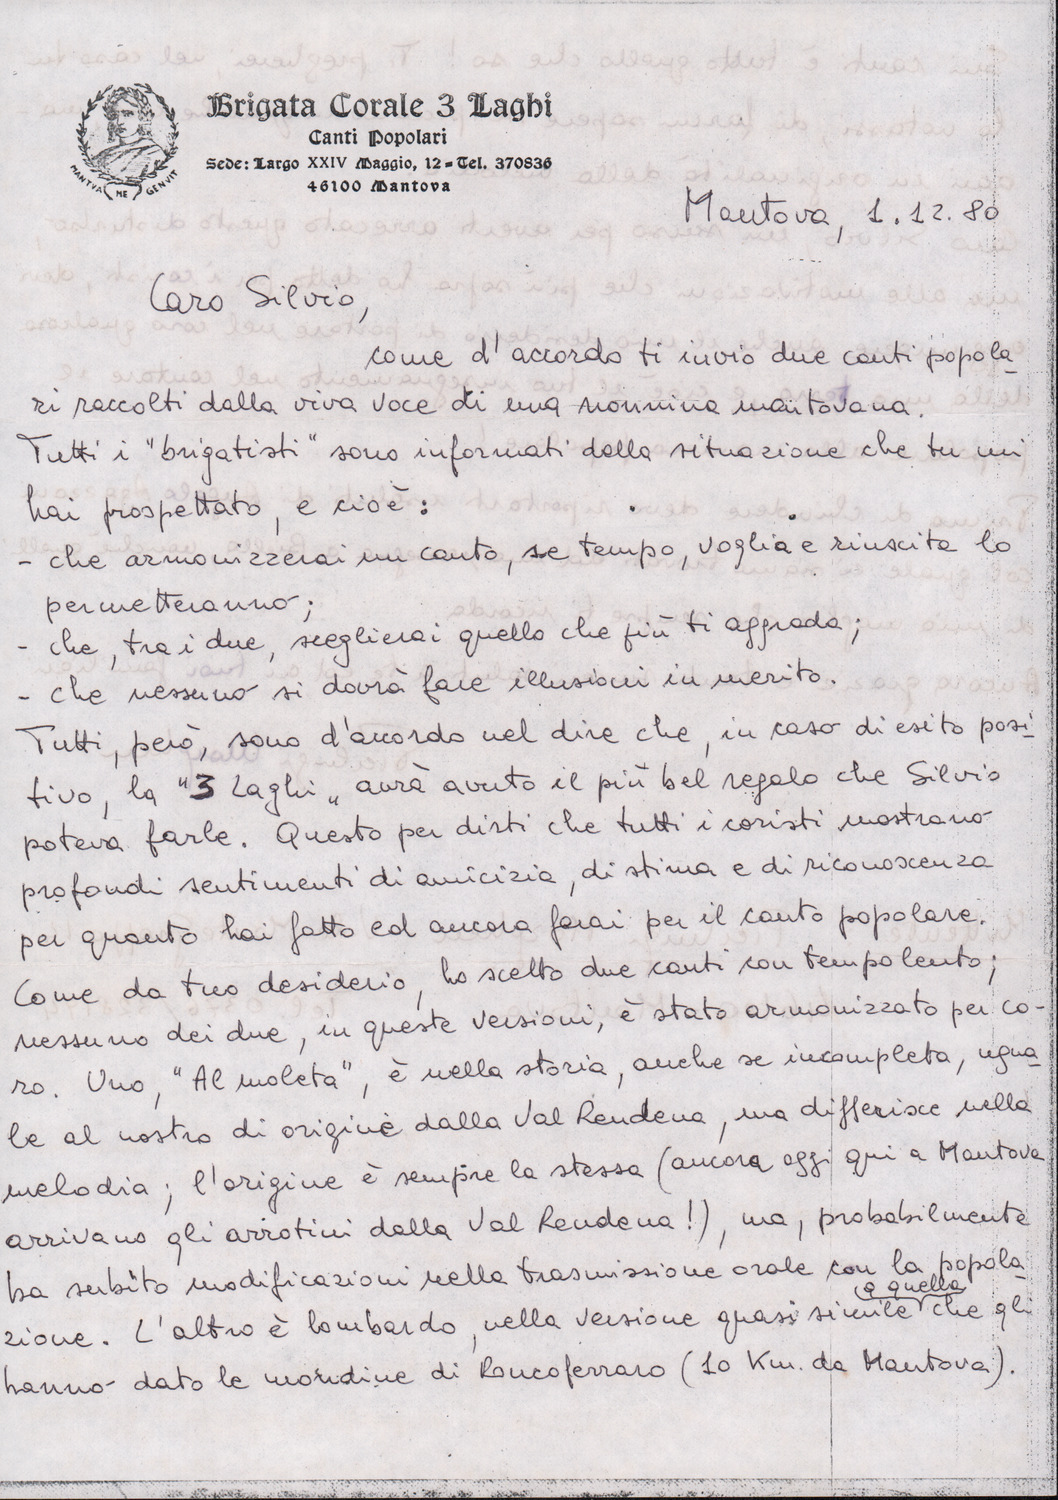 Brigata Corale 3 Laghi
Canti Popolari
Sede: Largo XXIV Maggio, 12 - Tel. 370836
46100 Mantova
MANTVA ME GENVIT
Mantova, 1.12.80
Caro Silvio,
come d'accordo ti invio due canti popola-
ri raccolti dalla viva voce di una nonnina mantovana.
Tutti i "brigatisti" sono informati della situazione che tu mi
hai prospettato, e cioè:
- che armonizzerai un canto, se tempo, voglia e riuscita lo
permetteranno;
- che, tra i due, sceglierai quello che più ti aggrada;
- che nessuno si dovrà fare illusioni in merito.
Tutti, però, sono d'accordo nel dire che, in caso di esito posi-
tivo, la "3 Laghi" avrà avuto il più bel regalo che Silvio
poteva farle. Questo per dirti che tutti i coristi mostrano
profondi sentimenti di amicizia, di stima e di riconoscenza
per quanto hai fatto ed ancora farai per il canto popolare.
Come da tuo desiderio, ho scelto due canti con tempo lento;
nessuno dei due, in queste versioni, è stato armonizzato per co-
ro. Uno, "Al moleta", è nella storia, anche se incompleta, ugua-
le al nostro di origine dalla Val Rendena, ma differisce nella
melodia; l'origine è sempre la stessa (ancora oggi qui a Mantova
arrivano gli arrotini dalla Val Rendena!), ma, probabilmente
ha subìto modificazioni nella trasmissione orale con la popola-
zione. L'altro è lombardo, nella versione quasi simile a quella che gli
hanno dato le mondine di Roncoferraro (10 Km. da Mantova).